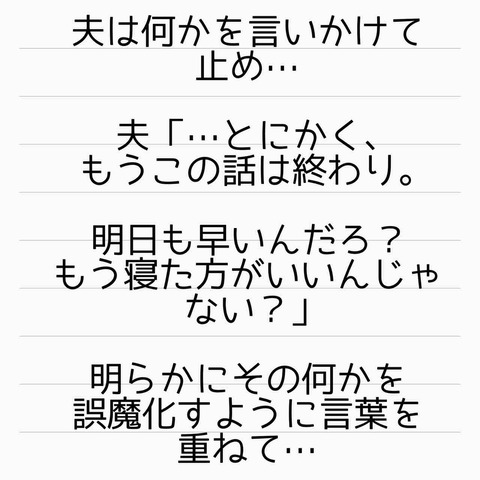 夫は何かを言いかけて
止め…
夫「…とにかく、
もうこの話は終わり。
明日も早いんだろ？
もう寝た方がいいんじゃ
ない？」
明らかにその何かを
誤魔化すように言葉を
重ねて…